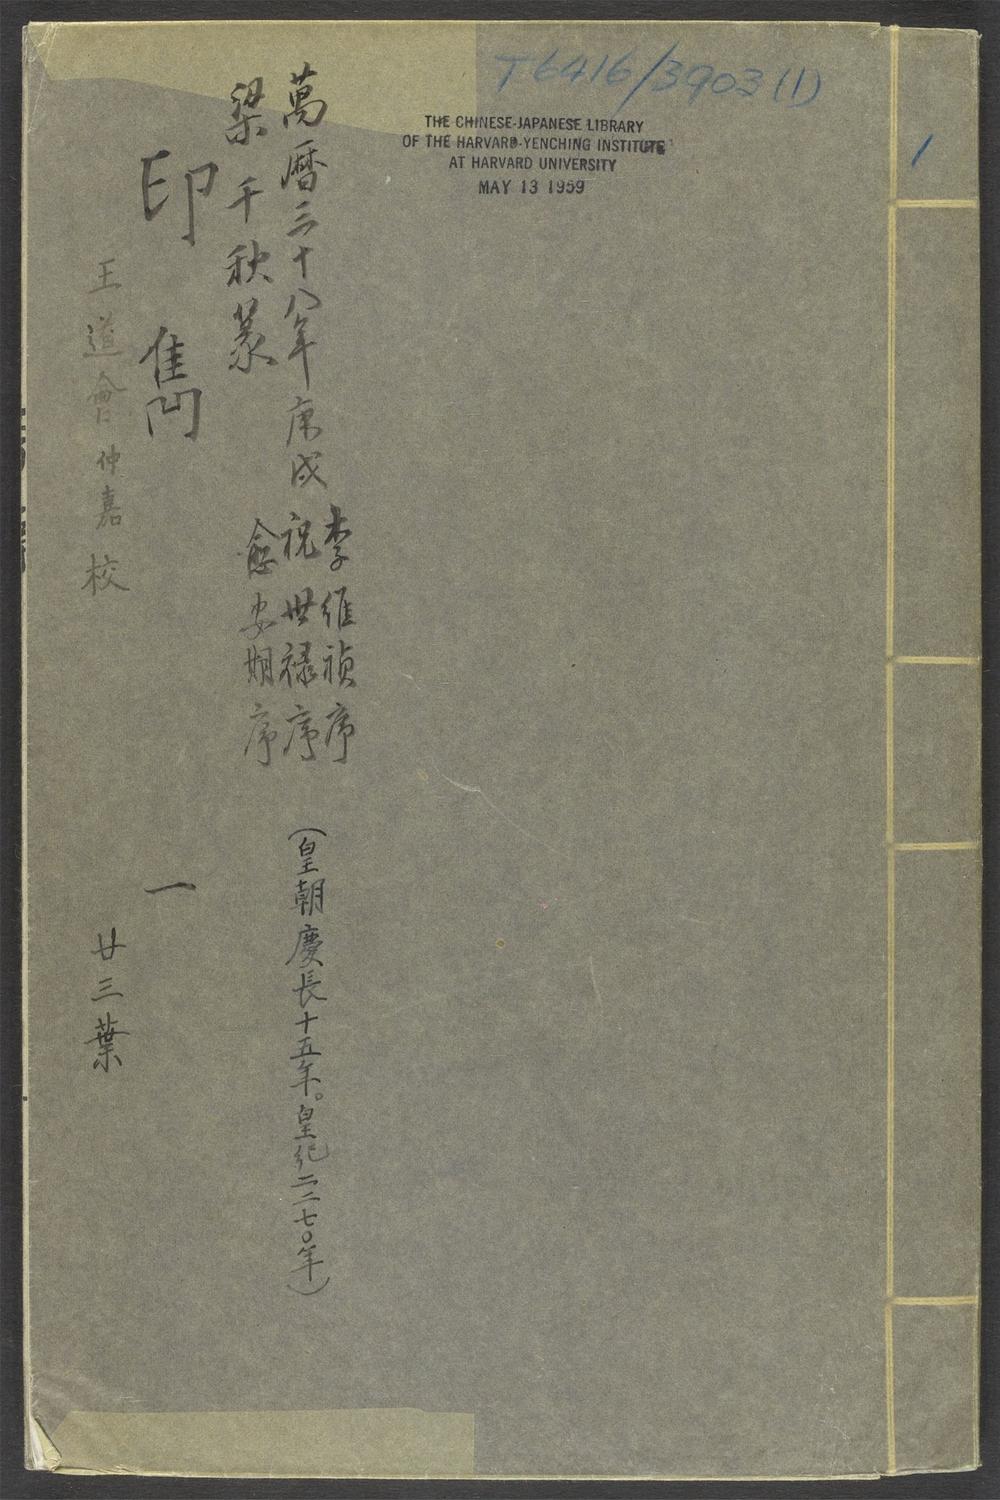 T6416/3903 (1)
1
THE CHINESE-JAPANESE LIBRARY
OF THE HARVARD-YENCHING INSTITUTE
AT HARVARD UNIVERSITY
MAY 13 1959
萬曆三十八年庚戌
李維禎序
祝世禄序
俞安期序
(皇朝慶長十五年。皇紀二二七〇年)
梁千秋篆
印雋 一
王道會仲嘉校
廿三葉